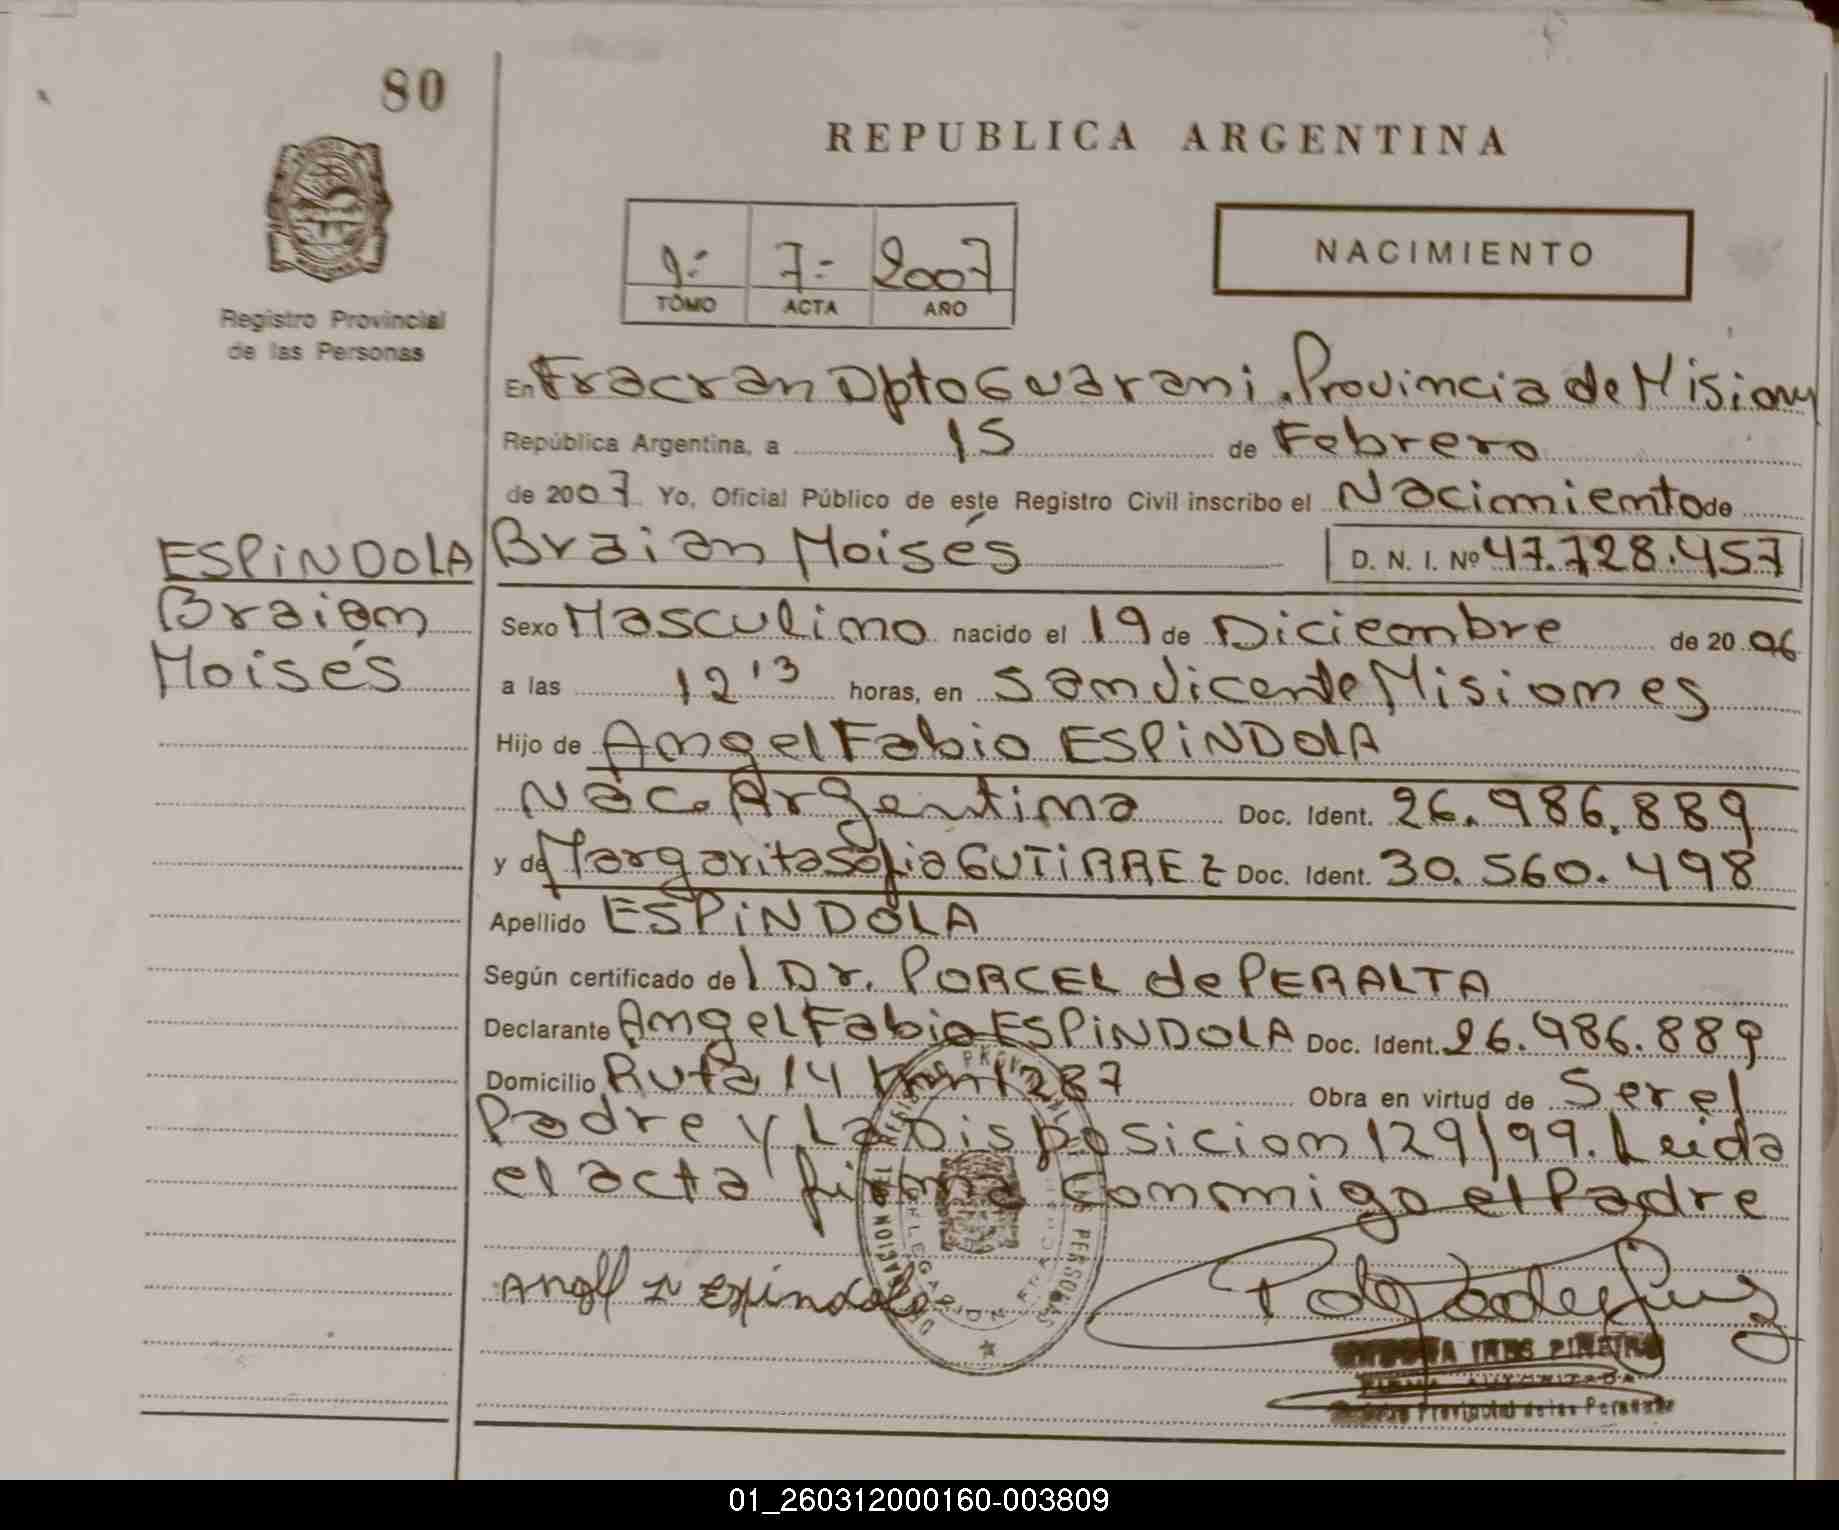 80
REPUBLICA ARGENTINA
NACIMIENTO
1º- 7- 2007
TOMO ACTA AÑO
Registro Provincial
de las Personas
En Fracran Dpto Guarani. Provincia de Misiones
República Argentina, a 15 de Febrero
de 2007 Yo, Oficial Público de este Registro Civil inscribo el Nacimiento de
ESPINDOLA
Braian
Moisés
Braian Moisés D. N. I. Nº 47.728.457
Sexo Masculino nacido el 19 de Diciembre de 2006
a las 12'3 horas, en San Vicente Misiones
Hijo de Angel Fabio ESPINDOLA
Nac. Argentina Doc. Ident. 26.986.889
y de Margarita Sofia GUTIRREZ Doc. Ident. 30.560.498
Apellido ESPINDOLA
Según certificado del Dr. PORCEL de PERALTA
Declarante Angel Fabio ESPINDOLA Doc. Ident. 26.986.889
Domicilio Ruta 14 Km 1287 Obra en virtud de Ser el
Padre y La Disposicion 129/99. Leida
el acta firma Conmigo el Padre
Espindola
INES PIÑEIRO
FIRMA AUTORIZADA
Registro Provincial de las Personas
01_260312000160-003809